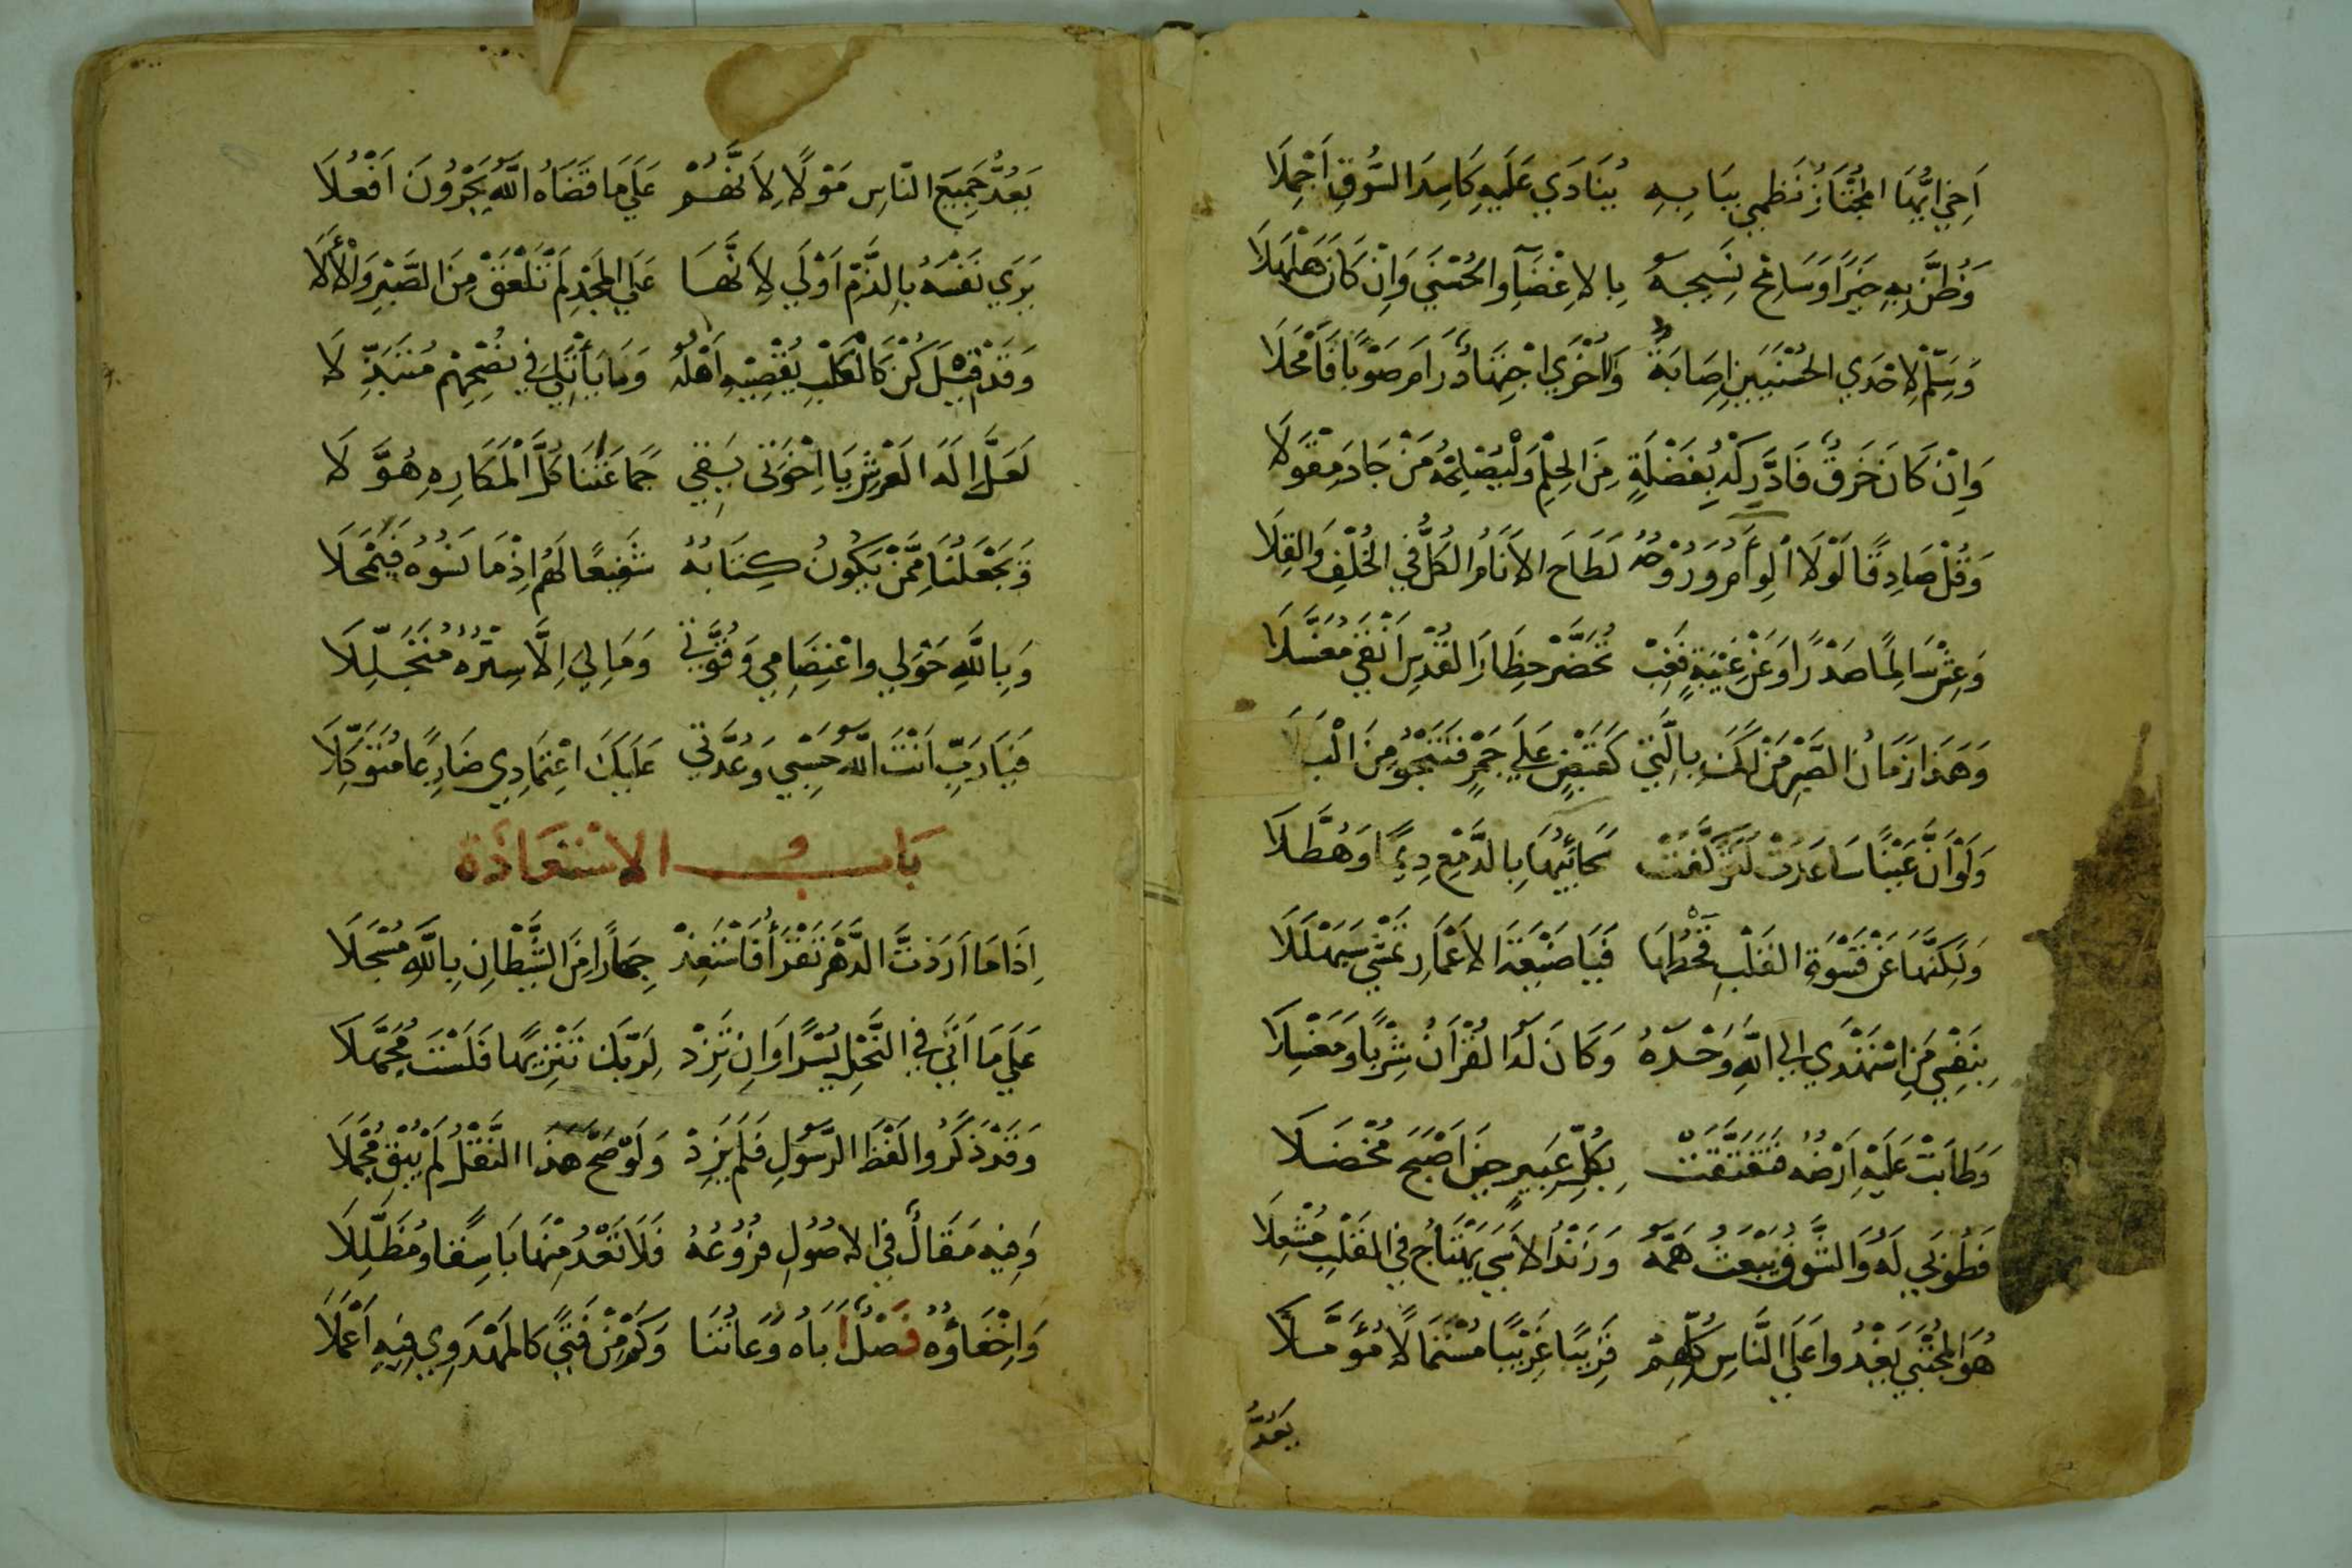 اَخِي اَيُّهَا المُجْتَازُ نَظْمِي بِبَابِهِ يُنَادَي عَلَيهِ كَاسِدَ السُّوقِ اَجْمِلَا
وَظُنَّ بِهِ خَيرًا وَسَامِحْ نَسِيجَهُ بِالاِغْضَآءِ والحُسْنَي وَاِنْ كَانَ هَلْهَلَا
وَسَلِّمْ لِاِحْدَي الحُسْنَيَينِ اِصَابَةٌ وَالاُخْرَي اجْتِهَادٌ رَامَ صَوْبًا فَاَمْحَلَا
وَاِنْ كَانَ خَرقٌ فَادَّرِكْهُ بِفَضْلَةٍ مِنَ الحِلْمِ وَلْيُصْلِحْهُ مَنْ جَادَ مِقْوَلَا
وَقُلْ صَادِقًا لَوْلَا الوِأَمُ وَرُوْحُهُ لَطَاحَ الاَنَامُ الكُلُّ فِي الخُلْفِ وَالقِلَا
وَعِشْ سَالِمًا صَدْرًا وَعَنْ غِيْبَةٍ فَغِبْ تُحَضَّرْ حِظَارَ القُدْسِ اَنْقَي مُغَسَّلَا
وَهَذَا زَمَانُ الصَّبْرِ مَنْ لَكَ بِالَّتِي كَقَبْضٍ عَلَي جَمْرٍ فَتَنْجُو مِنَ الْبَلَا
وَلَوْ اَنَّ عَيْنًا سَاعَدَتْ لَتَوَكَّفَتْ سَحَائِبُهَا بِالدَّمْعِ دِيمًا وَهُطَّلَا
وَلَكِنَّهَا عَنْ قَسْوَةِ القَلْبِ قَحْطُهَا فَيَا ضَيْعَةَ الاَعْمَارِ تَمْشِي سَبَهْلَلَا
بِنَفْسِي مَنِ اسْتَهْدَي اِلي اللَّهِ وَحْدَهُ وَكَانَ لَهُ القُرْاَنُ شِرْبًا وَمَغْسِلَا
وَطَابَتْ عَلَيْهِ اَرْضُهُ فَتَفَتَّقَتْ بِكُلِّ عَبِيرٍ حِينَ اَصْبَحَ مُخْضَلَا
فَطُوبَي لَهُ وَالشَّوقُ يَبْعَثُ هَمَّهُ وَزَنْدُ الاَسَي يَهْتَاجُ فِي القَلْبِ مُشْعِلَا
هُوَ المُجْتَبَي يَغْدُوا عَلَي النَّاسِ كُلِّهِمْ قَرِيبًا غَرِيْبًا مُسْتَمَالًا مُؤَمَّلَا
يَعُدُّ
يَعُدُّ جَمِيعَ النَّاسِ مَوْلًا لِاَنَّهُمْ عَلَي مَا قَضَاهُ اللَّهُ يَجْرُونَ اَفْعُلَا
يَرَي نَفْسَهُ بِالذَّمِّ اَوْلَي لِاَنَّهَا عَلَي المَجْدِ لَمْ تَلْعَقْ مِنَ الصَّبْرِ وَالْأَلَا
وَقَدْ قِيْلَ كُنْ كَالْكَلْبِ يُقْصِيْهِ اَهْلُهُ وَمَا يَأْتَلِي فِي نُصْحِهِمْ مُتَبَذِّلَا
لَعَلَّ اِلَهَ العَرْشِ يَا اِخْوَتِي يَقِي جَمَاعَتَنَا كُلَّ الْمَكَارِهِ هُوَّلَا
وَيَجْعَلُنَا مِمَّنْ يَكُونُ كِتَابُهُ شَفِيعًا لَهُمْ اِذْ مَا نَسُوهُ فَيَمْحَلَا
وَبِاللَّهِ حَوْلِي واعْتِصَامِي وَقُوَّتِي وَمَا لِي اِلَّا سِتْرُهُ مُتَجَلِّلَا
فَيَا رَبِّ اَنْتَ اللَّهُ حَسْبِي وَعُدَّتِي عَلَيْكَ اعْتِمَادِي ضَارِعًا مُتَوَكِّلَا
بَاب الاِسْتِعَاذَة
اِذَا مَا اَرَدْتَ الدَّهْرَ تَقْرَأُ فَاسْتَعِذْ جِهَارًا مِنَ الشَّيْطَانِ بِاللَّهِ مُسْجَلَا
عَلَي مَا اَتَي فِي النَّحْلِ يُسْرًا وَاِن تَزِدْ لِرَبِّكَ تَنْزِيهًا فَلَسْتَ مُجَهَّلَا
وَقَدْ ذَكَرُوا لَفْظَ الرَّسُولِ فَلَمْ يَزِدْ وَلَوْ صَحَّ هَذَا النَّقْلُ لَمْ يُبْقِ مُجْمَلَا
وَفِيْهِ مَقَالٌ فِي الاُصُولِ فُرُوْعُهُ فَلَا تَعْدُ مِنْهَا بَاسِقًا وَمُظَلِّلَا
وَاِخْفَاؤُهُ فَصْلٌ اَبَاهُ وُعَاتُنَا وَكَمْ مِنْ فَتًي كَالمَهْدَوِي فِيهِ اَعْمَلَا